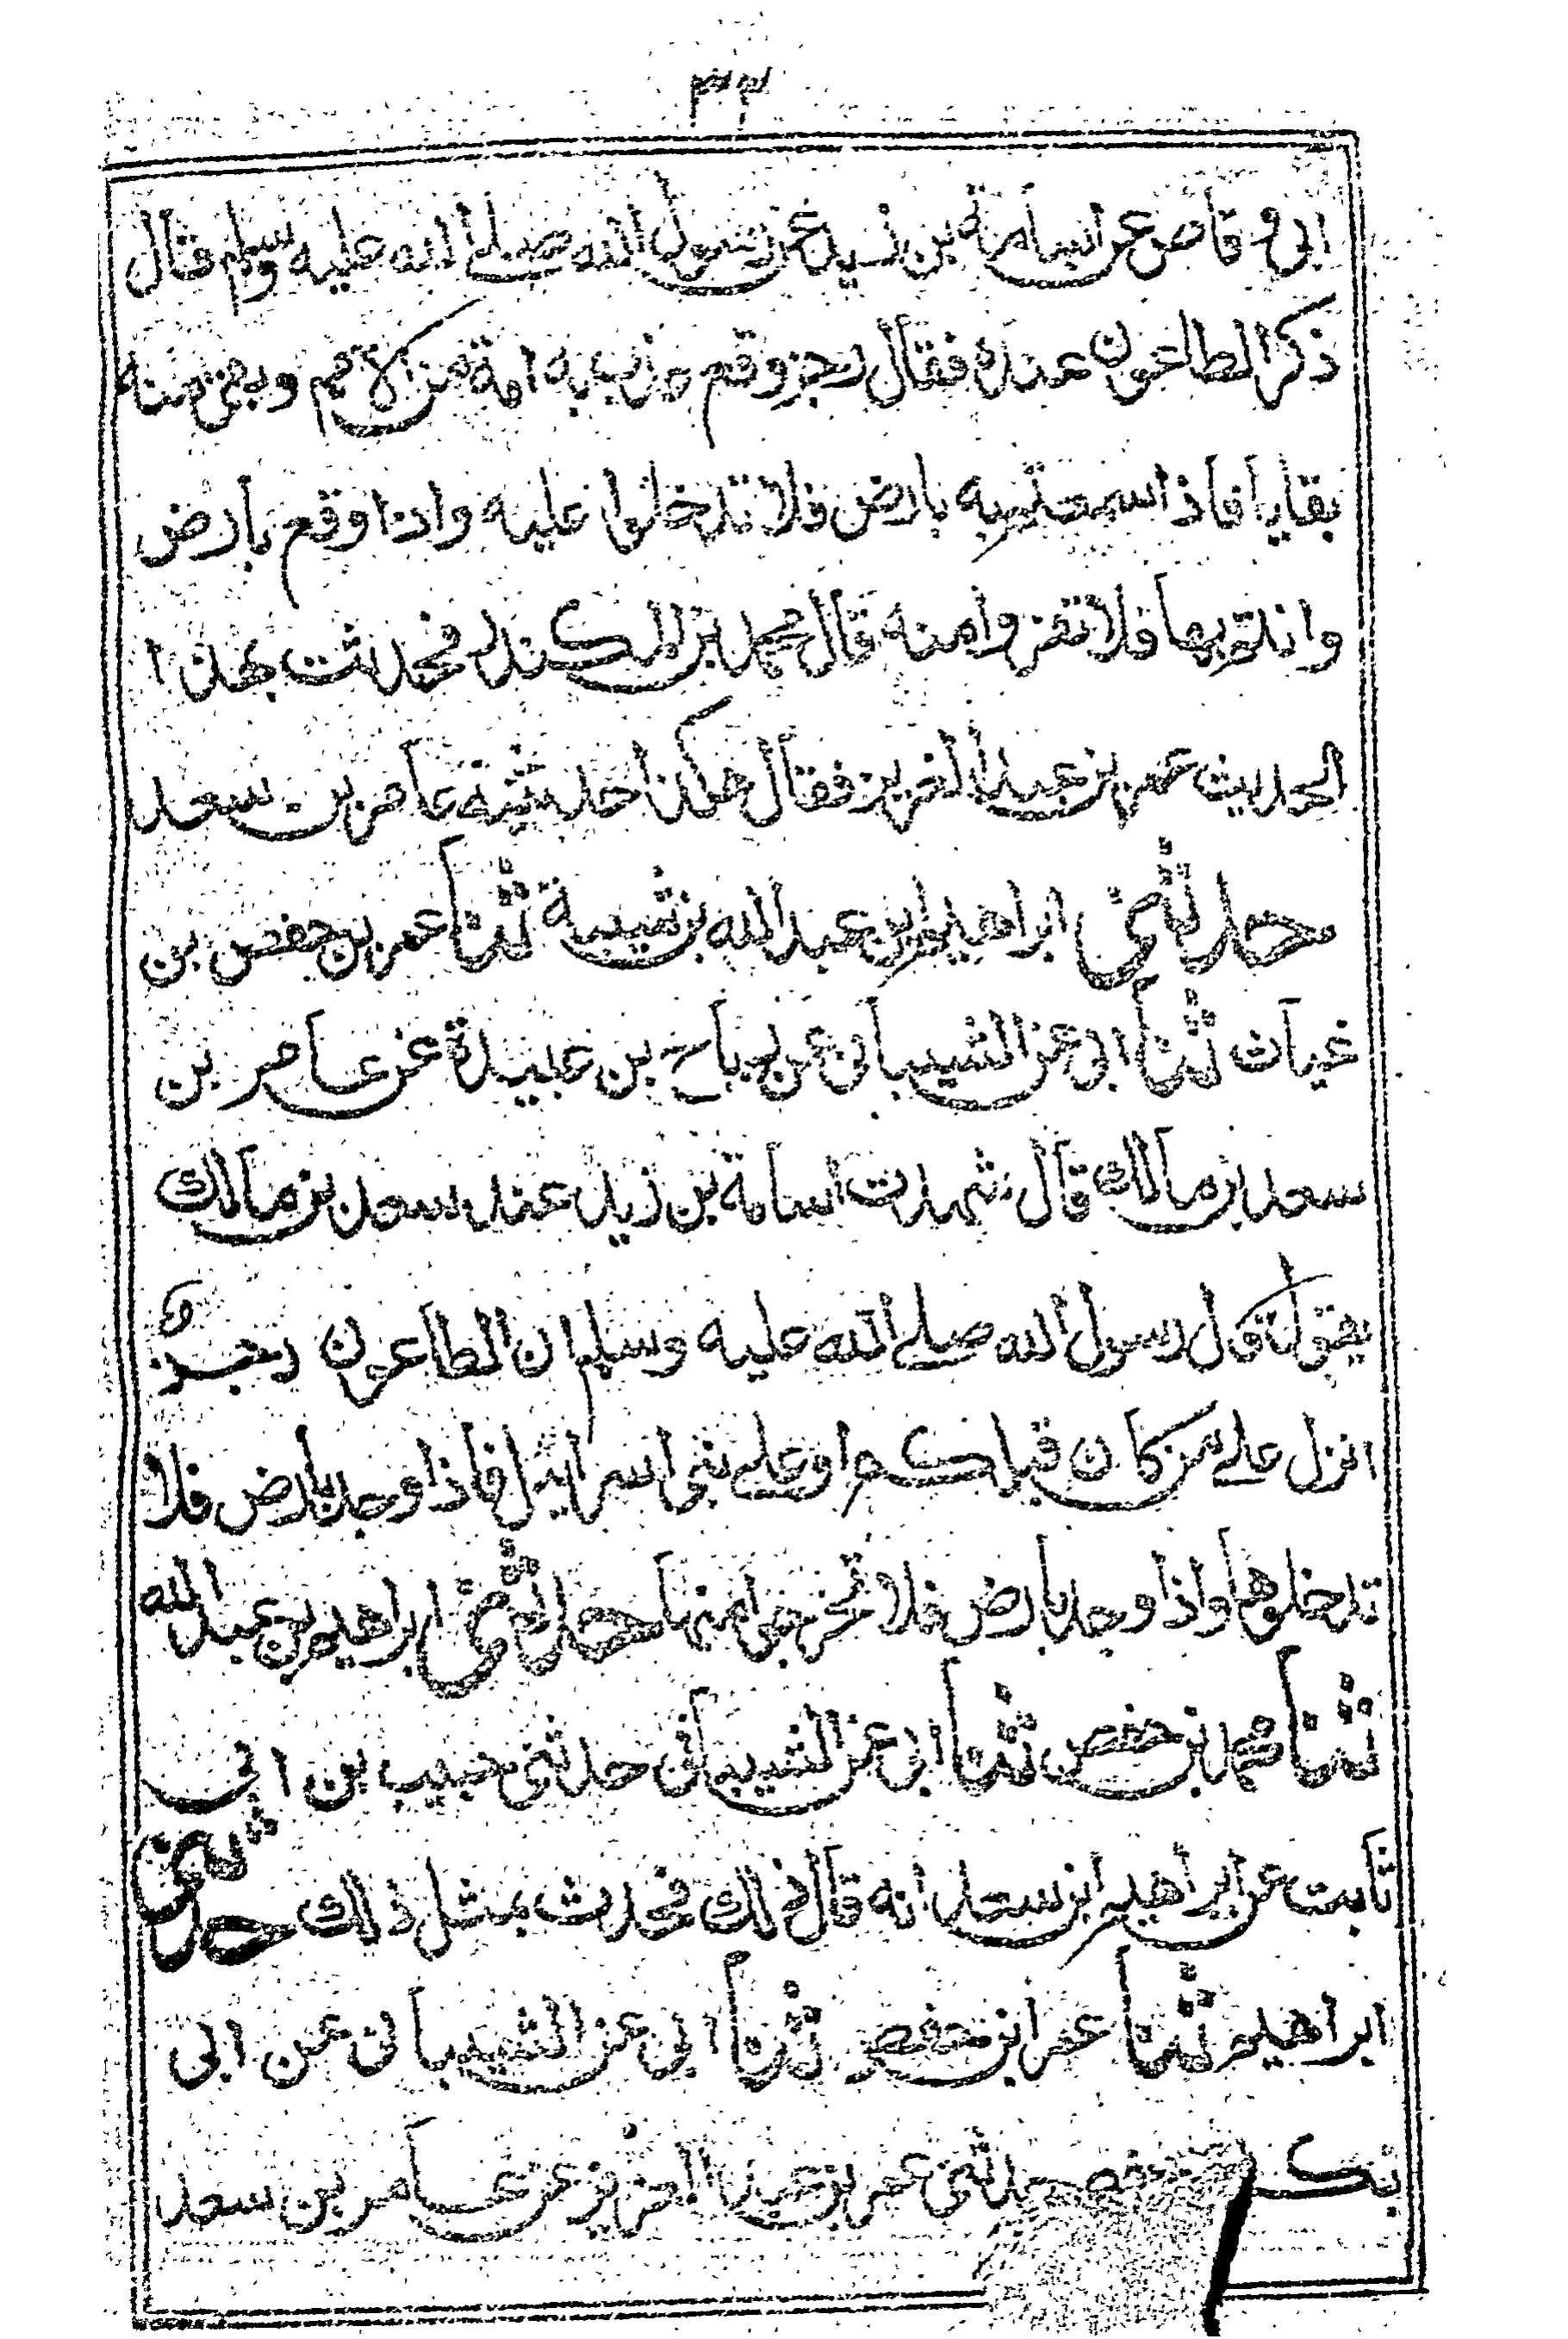 ابى وقاص عن اسامة بن زيد عن رسول الله صلے الله عليه وسلم قال
ذكر الطاعون عنده فقال رجز وقع عذب به امة من الامم وبقى منه
بقايا فاذا سمعتم به بارض فلا تدخلوا عليه واذا وقع بارض
وانتم بها فلا تفروا منه قال محمد بن المنكدر فحدثت بهذا
الحديث عمر بن عبد العزيز فقال هكذا حدثنيه عامر بن سعد
حدثنى ابراهيم بن عبد الله بن شيبة ثنا عمر بن حفص بن
غياث ثنا ابى عن الشيبانى عن رباح بن عبيدة عن عامر بن
سعد بن مالك قال شهدت اسامة بن زيد عند سعد بن مالك
يقول قال رسول الله صلے الله عليه وسلم ان الطاعون رجز
انزل علے من كان قبلكم او علے بنى اسرائيل فاذا وجد بارض فلا
تدخلوها واذا وجد بارض فلا تخرجوا منها حدثنى ابراهيم بن عبد الله
ثنا محمد بن حفص ثنا ابى عن الشيبانى حدثنى حبيب بن ابى
ثابت عن ابراهيم ابن سعد انه قال ذلك فحدث بمثل ذلك حدثنى
ابراهيم ثنا عمر ابن حفص ثنا ابى عن الشيبانى عن ابى
بكر بن حفص حدثنى عمر بن عبد العزيز عن عامر بن سعد